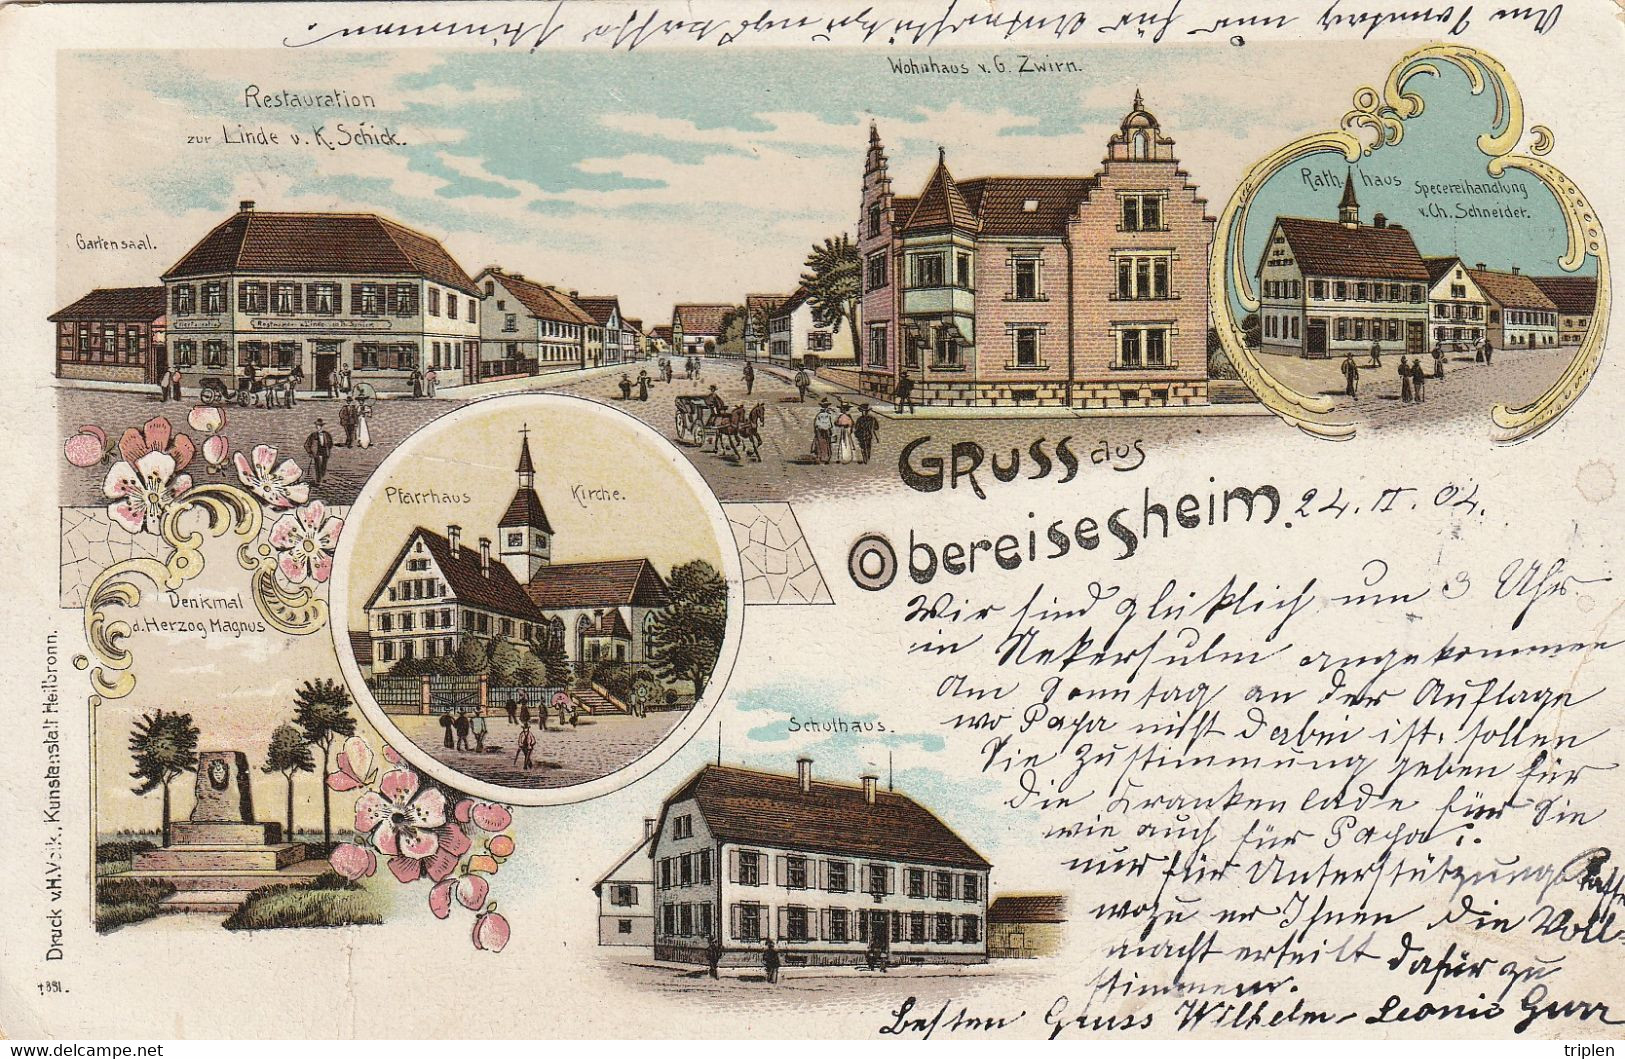 Am Sonntag nur für Unterstützungskasse stimmen.
Restauration
zur Linde v. K. Schick.
Wohnhaus v. G. Zwirn.
Rathhaus
Specereihandlung
v. Ch. Schneider.
Gartensaal.
Gruss aus
Obereisesheim.
24. II. 04.
Pfarrhaus
Kirche.
Denkmal
d. Herzog Magnus
Schulhaus.
Wir sind glüklich um 3 Uhr
in Nekersulm angekommen
Am Sonntag an der Auflage
wo Papa nicht dabei ist, sollen
Sie Zustimmung geben für
die Krankenlade für Sie
wie auch für Papa:
nur für Unterstützungskasse
wozu er Ihnen die Voll-
macht erteilt dafür zu
stimmen.
Besten Gruss Wilhelm - Leonie Gurr
Druck v. H. Volk, Kunstanstalt Heilbronn.
†881.
triplen